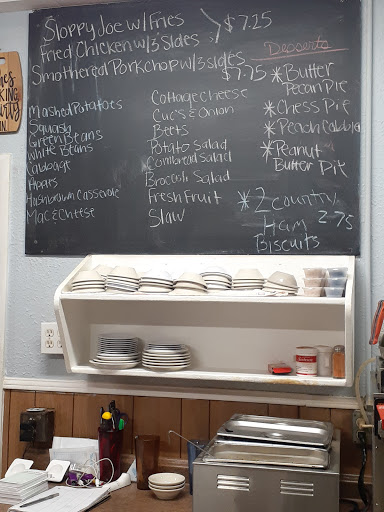 Sloppy Joe w/ Fries
Fried Chicken w/3 Sides
$7.25
Smothered Pork chop w/3 sides
$7.75
Mashed Potatoes
Squash
Green Beans
White Beans
Cabbage
Apples
Hashbrown Casserole
Mac & Cheese
Cottage Cheese
Cuc's & Onion
Beets
Potato Salad
Cornbread Salad
Broccoli Salad
Fresh Fruit
Slaw
Desserts
*Butter
Pecan Pie
*Chess Pie
*Peach Cobbla
*Peanut
Butter Pie
*2 country
Ham 2-75
Biscuits